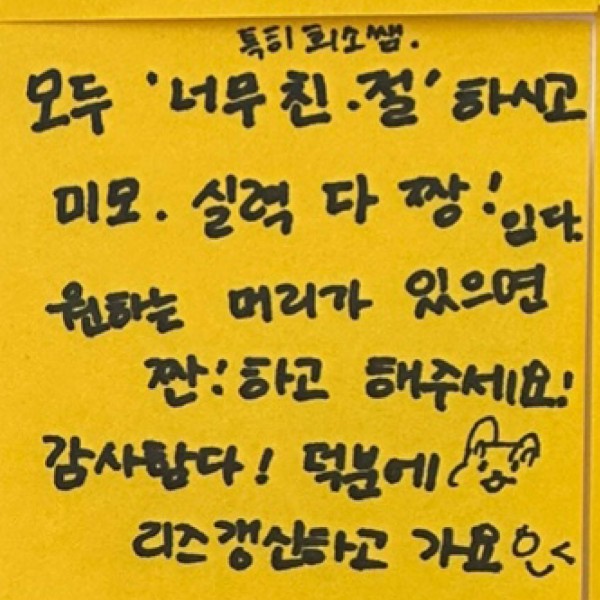 특히 희소쌤.
모두 '너무 친.절' 하시고
미모. 실력 다 짱! 임다.
원하는 머리가 있으면
짠! 하고 해주세요!
감사함다! 덕분에
리즈갱신하고 가요